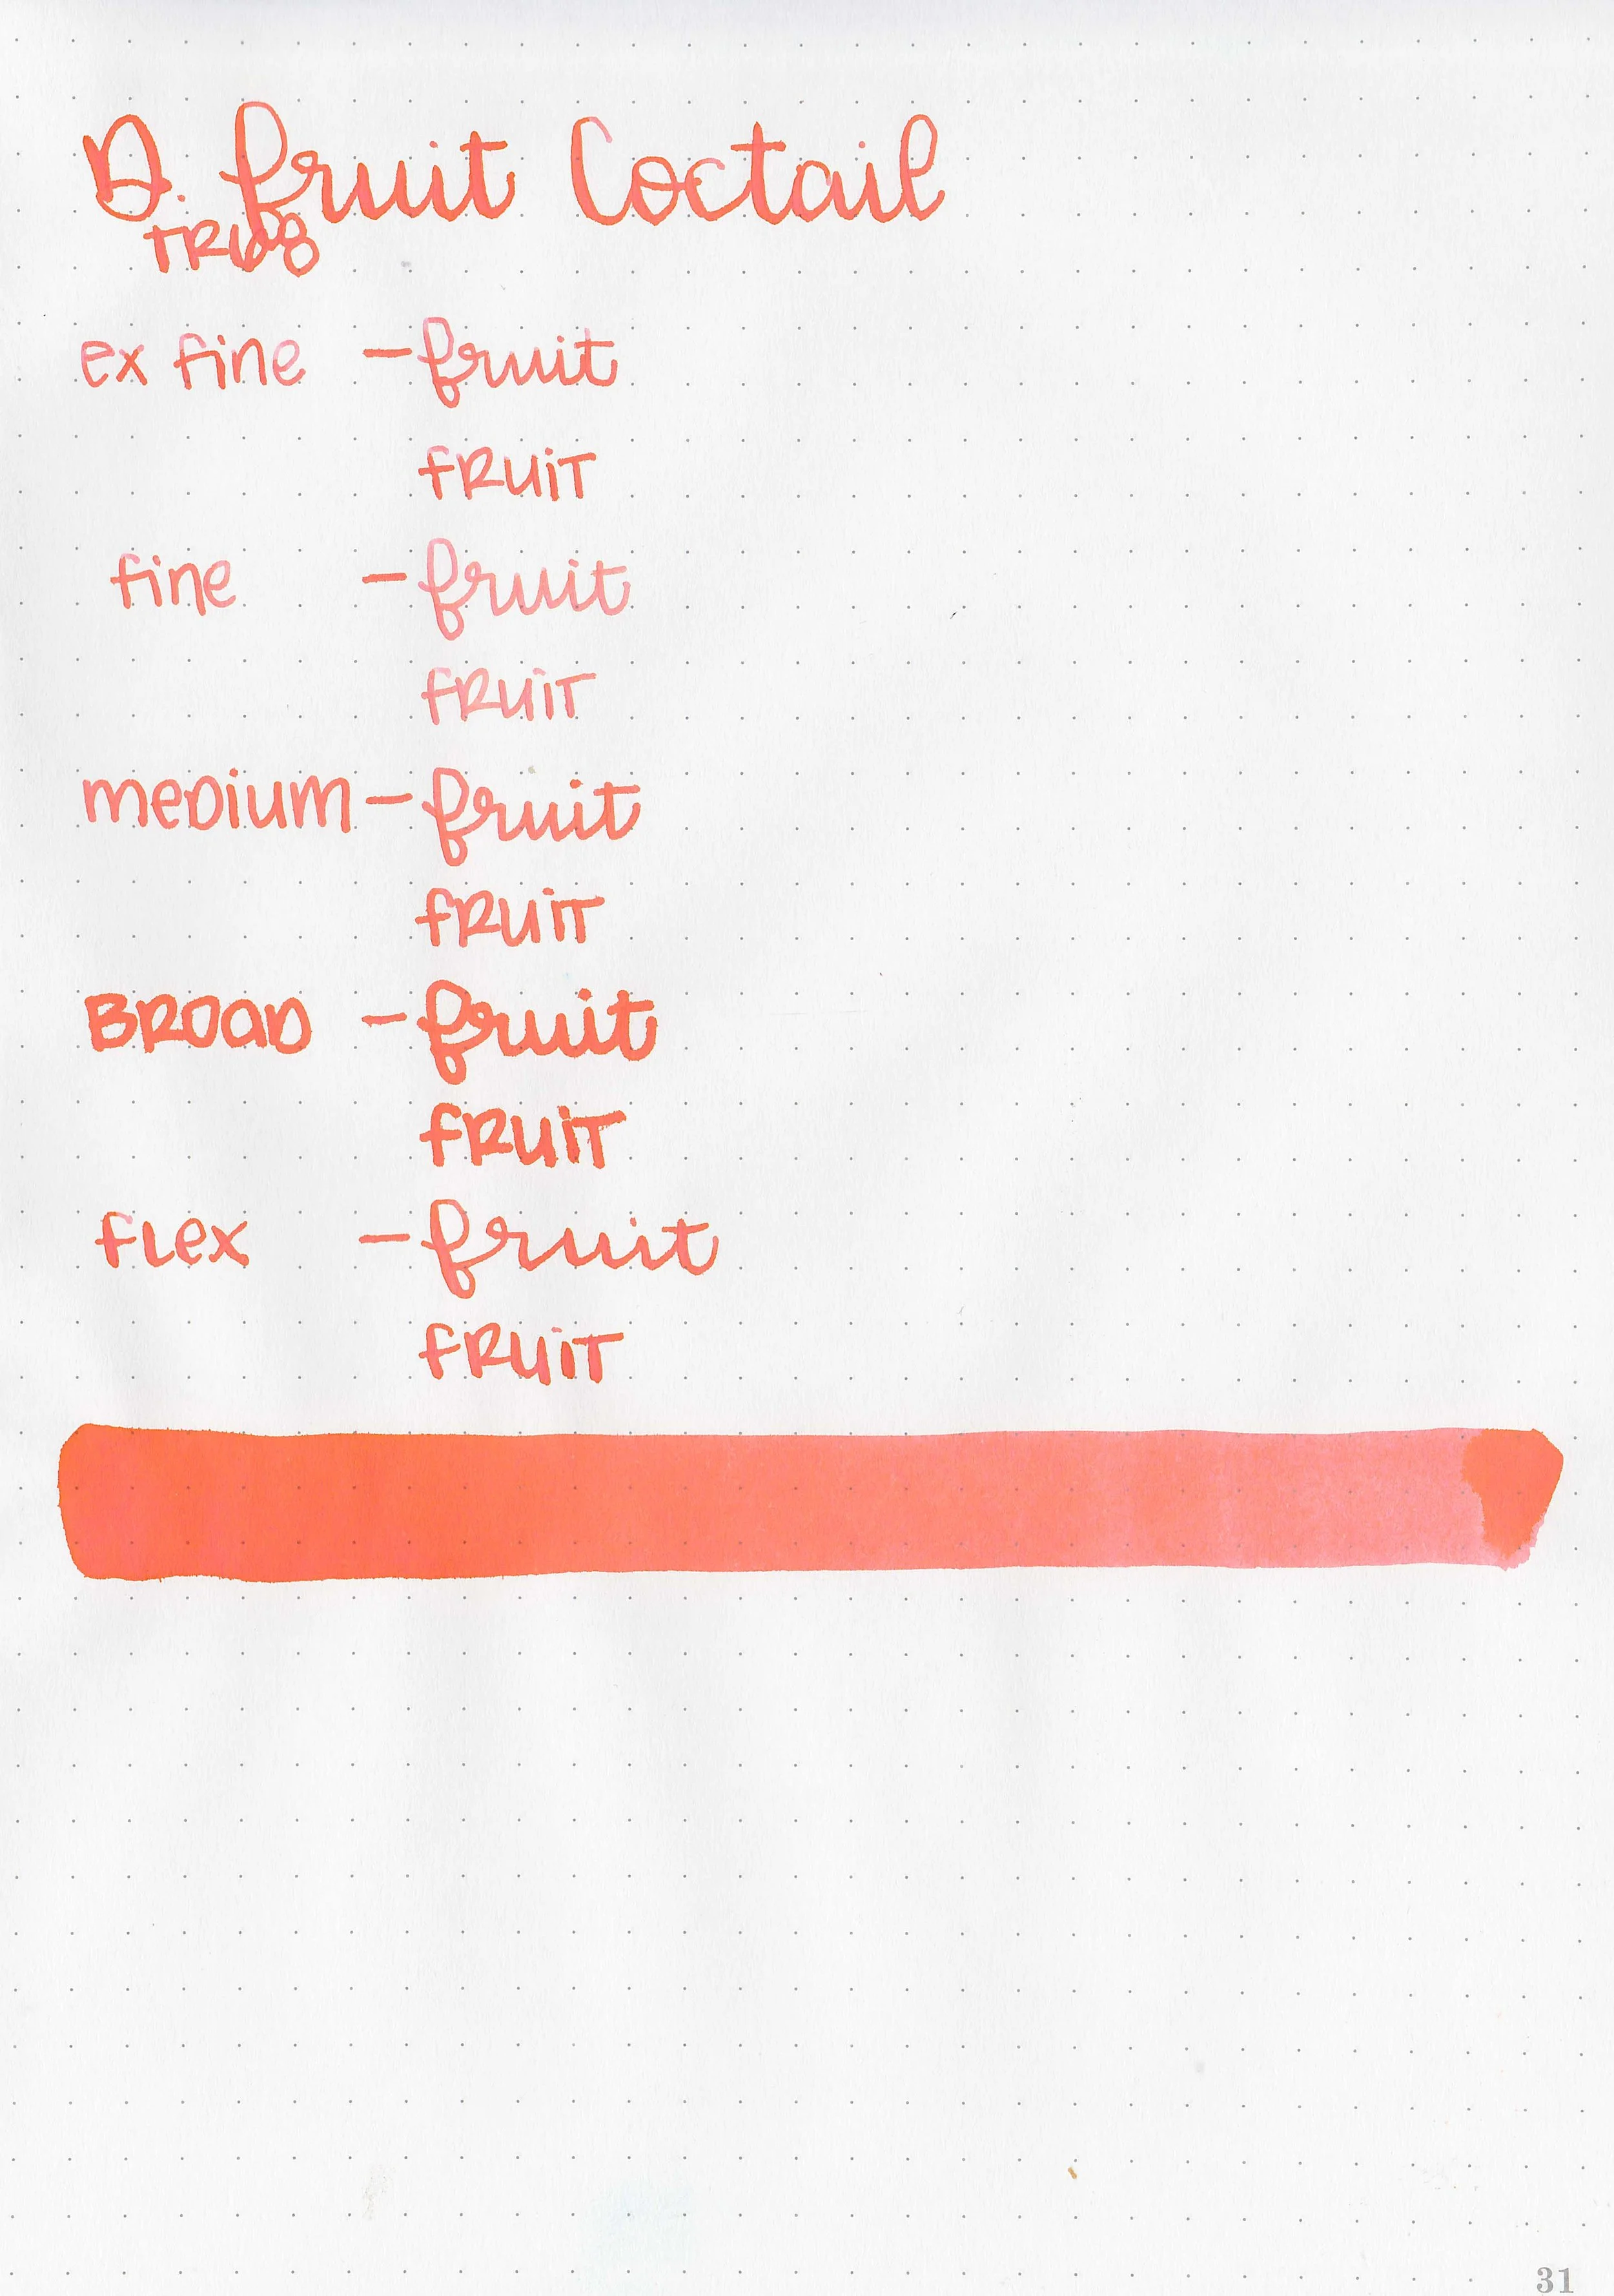 D. fruit Coctail
TR68
ex fine - fruit
fRuiT
fine - fruit
fRuiT
meDium - fruit
fRuiT
BRoaD - fruit
fRuiT
fLex - fruit
fRuiT
31